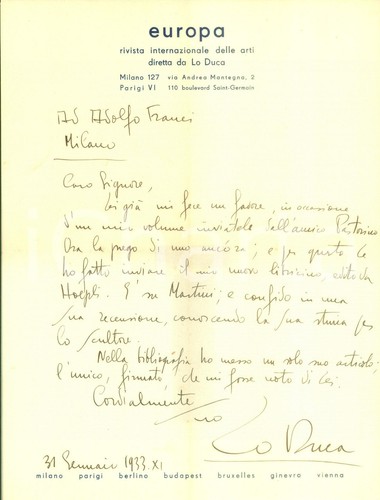 europa
rivista internazionale delle arti
diretta da Lo Duca
Milano 127 via Andrea Mantegna, 2
Parigi VI 110 boulevard Saint-Germain
Ad Adolfo Franci
Milano
Caro Signore,
Lei già mi fece un favore, in occasione
d'un mio volume inviatole dall'amico Pastorino
Ora la prego di uno ancóra; e per questo le
ho fatto inviare il mio nuovo libriccino, edito da
Hoepli. E' su Martini; e confido in una
sua recensione, conoscendo la sua stima per
lo scultore.
Nella bibliografia ho messo un solo suo articolo:
l'unico, firmato, che mi fosse noto di lei.
Cordialmente
suo
Lo Duca
31 Gennaio 1933.XI
milano parigi berlino budapest bruxelles ginevra vienna